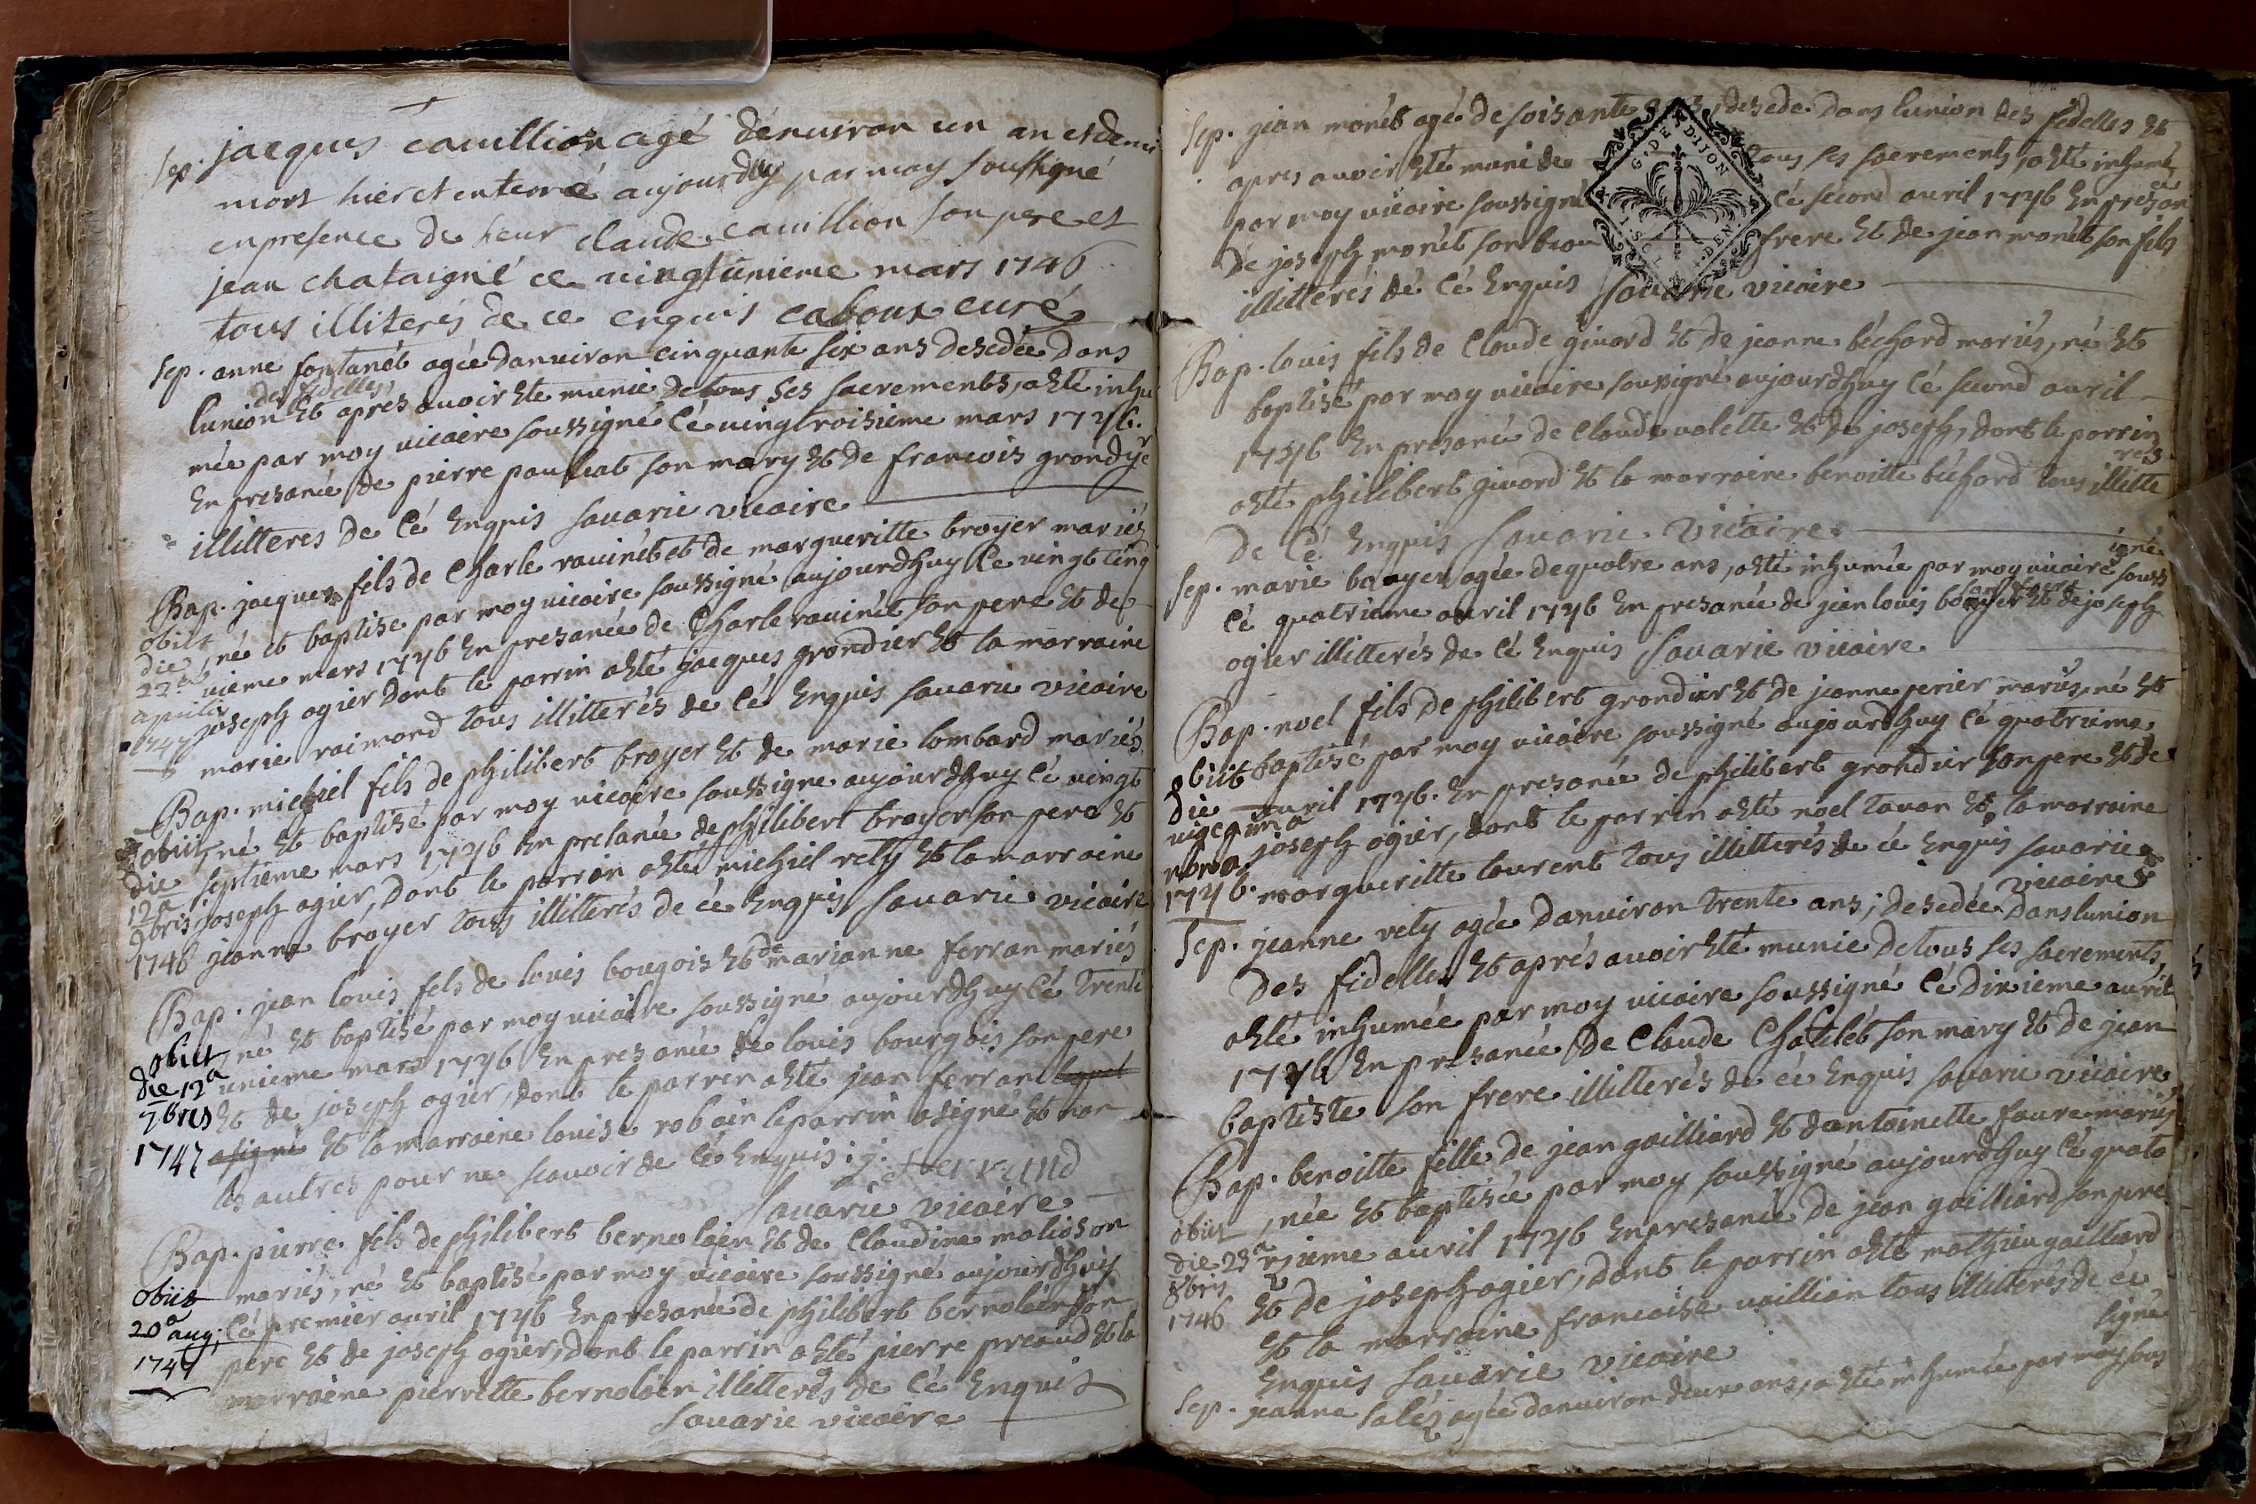 Sep. jacques cauillion agé denuiron un an et demi
mort hier et enterré aujourdhuy par moy soussigné
en presence de sieur claude cauillion son pere et
jean chataigné ce vingtunieme mars 1746
tous illiterés de ce enquis caboux curé
Sep. anne fontanét agée danuiron cinquante six ans desedée dans
des fidelles
lunion et apres auoir été munie de tous ses sacrements, a été inhu
mée par moy uicaire soussigné cé uingtroisieme mars 1746.
En presance de pierre pauliat son mary et de francois grondyer
illitteres de cé Enquis sauarie vicaire
Bap. jacques fils de Charle rauinét et de margueritte broyer mariés
né et baptize par moy uicaire soussigné aujourdhuy le uingt cinq
uieme mars 1746 En presance de Charle rauinét son pere et de
joseph ogier dont le parrin a été jacques grondier et la marraine
marie raimond tous illitterés de cé Enquis sauarie vicaire
obiit
die
22a
aprilis
1747
Bap. michiel fils de philibert broyer et de marie lombard mariés
né et baptizé par moy uicaire soussigne aujourdhuy cé uingt
septieme mars 1746 En presance de philibert broyer son pere et
joseph ogier, dont le parrin a été michiel vety et la marraine
jeanne broyer tous illitterés de cé Enquis sauarie vicaire
obiit
die
12a
9bris
1746
Bap. jean louis fils de louis bougois et de marianne ferran mariés
né et baptisé par moy uicaire soussigné aujourdhuy cé trente
unieme mars 1746 En presance de louis bourgois son pere
et de joseph ogier, dont le parren a été jean ferran lequel
a signé et la marraine louise robain le parrin a signé et non
les autres pour ne scauoir de cé Enquis. j. ferrand
sauarie vicaire
obiit
die 12a
7bres
1747
Bap. pierre fils de philibert bernolain et de Claudine malioson
mariés, né et baptisé par moy uicaire soussigné aujourdhuy
cé premier auril 1746 En presance de philibert bernolain son
pere et de joseph ogier, dont le parrin a été pierre preaud et la
marraine pierrette bernolain illitterés de Cé Enquis
sauarie vicaire
obiit
20a aug:
1747
Sep. jean monét agé de soisante ans, desede dans lunion des fidelles et
apres auoir été muni de tous ses sacrements, a été inhumé
par moy uicaire soussigné cé second auril 1746 En presance
de joseph monét son beau frere et de jean monét son fils
illitterés de Cé Enquis sauarie vicaire
G. DE DIJON
Bap. louis fils de Claude giuord et de jeanne béchard mariés, né et
baptisé par moy uicaire soussigné aujourdhuy Cé second auril
1746 En presance de Claude valette et de joseph, dont le parrin
a été philibert giuord et la marraine benoitte béchard tous illitte
rés
de Cé Enquis Sauarie. Vicaire.
Sep. marie boayer agée de quatre ans, a été inhumée par moy uicaire souss
igné
Cé quatrieme auril 1746 En presance de jean louis et de joseph
ogier illitterés de Cé Enquis Sauarie vicaire
Bap. noel fils de philibert grondier et de jeanne perier mariés, né et
baptisé par moy uicaire soussigné aujourdhuy cé quatrieme
auril 1746. En presance de philibert grondier son pere et de
joseph ogier, dont le parrin a été noel tauan et, la marraine
margueritte laurent tous illitterés de cé Enquis sauarie
vicaire
obiit
die
uigesima
nona
1746.
Sep. jeanne vety agée danuiron trente ans; desedée dans lunion
des fidelles et aprés auoir été munie de tous ses sacrements,
a été inhumée par moy uicaire soussigné Cé dixieme auril
1746 En presance, de Claude Chatelét son mary et de jean
baptiste son frere illitterés de cé Enquis sauarie vicaire,
Bap. benoitte fille de jean gailliard et dantoinette faure mariés
, née et baptisée par moy soussigné aujourdhuy Cé quato
rzieme auril 1746 En presance de jean gailliard son pere
et de joseph ogier, dont le parrin a été mathieu gailliard
et la marraine francoise uaillian tous illitterés de cé
Enquis sauarie vicaire
obiit
die 23a
8bris
1746
signé
Sep. jeanne saléz agée danuiron deux ans, a été inhumée par moy sous